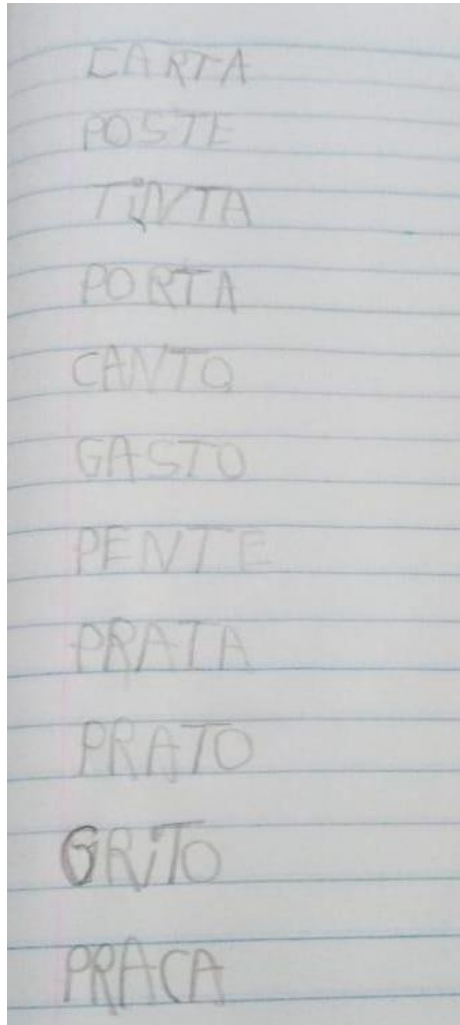 CARTA
POSTE
TiNTA
PORTA
CANTO
GASTO
PENTE
PRATA
PRATO
GRiTO
PRACA